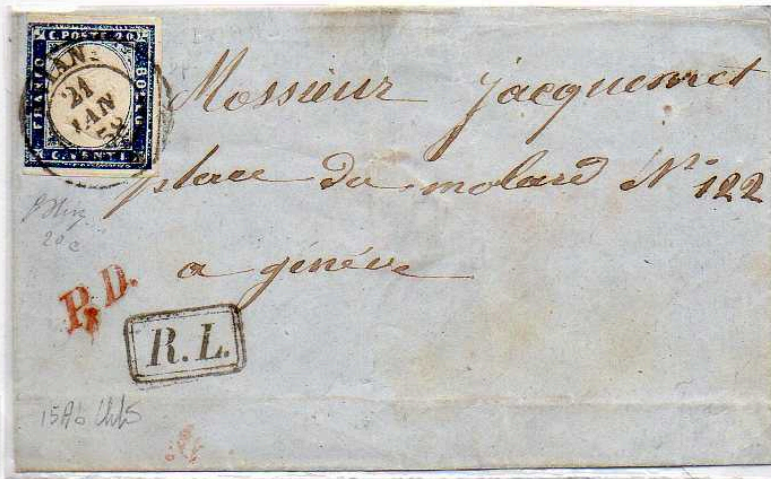 C. POSTE 20
FRANCO
BOLLO
21
JAN
58
Monsieur Jacquemet
place du molard N° 122
a genève
20 c
P.D.
R.L.
15Ab